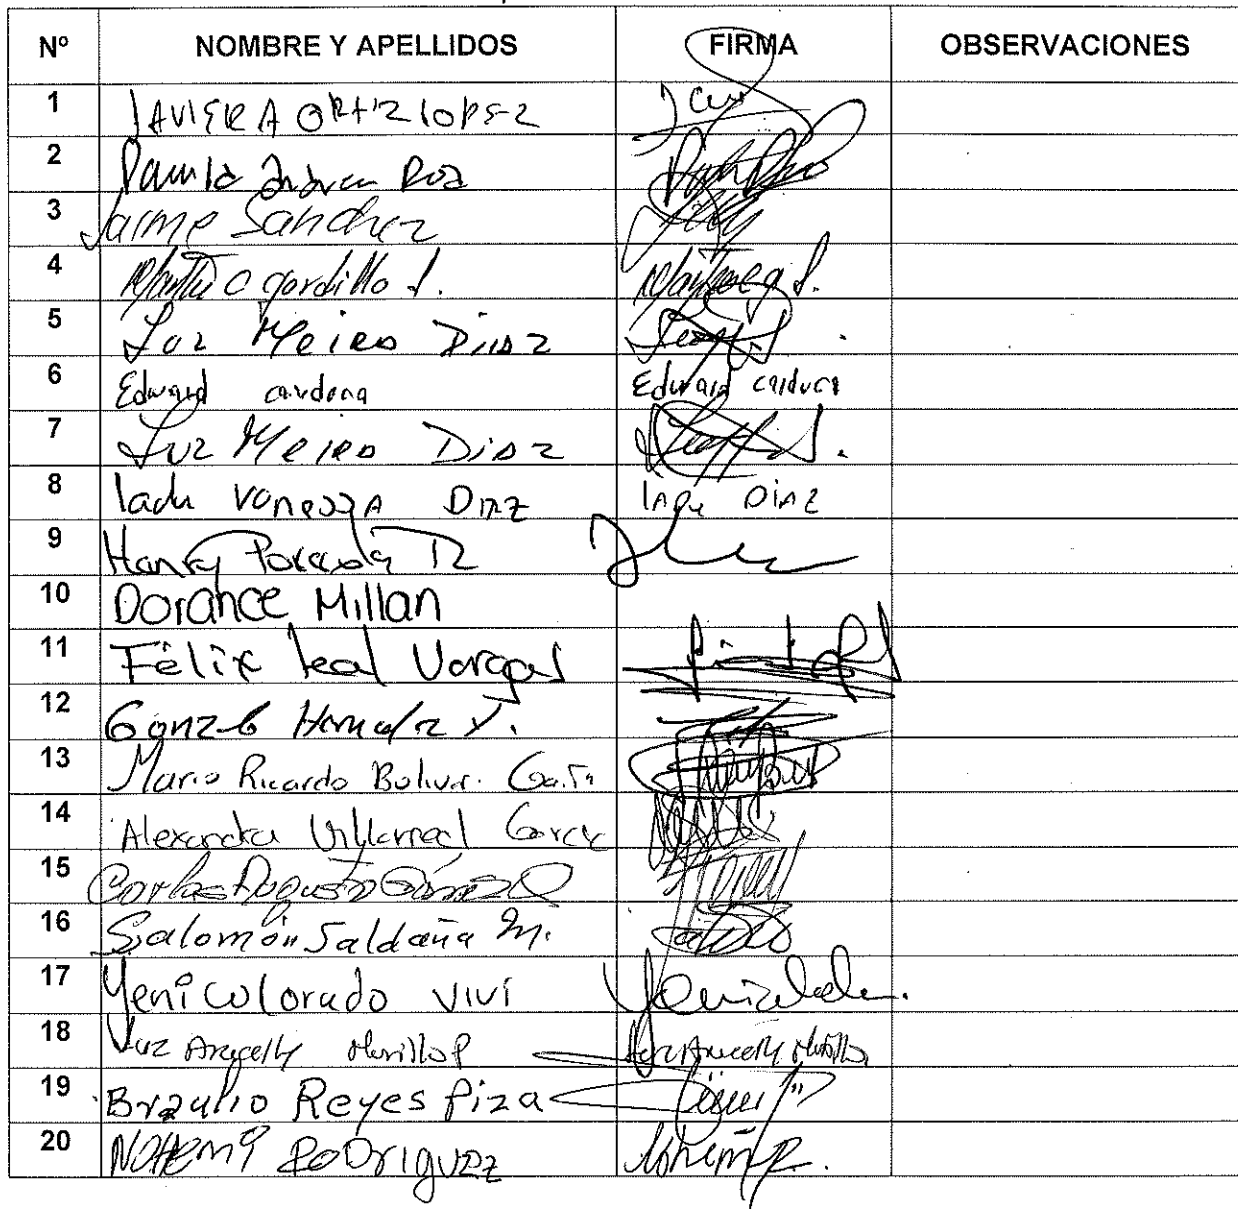 Nº NOMBRE Y APELLIDOS FIRMA OBSERVACIONES
1 JAVIER A ORTIZ LOPEZ
2 Paula Andrea Roa
3 Jaime Sanchez
4 Martha C gordillo S.
5 Luz Meira Diaz
6 Edward cardona Edward cardona
7 Luz Meira Diaz
8 lady VanessA DIAZ lady DIAZ
9 Henry
10 Dorance Millan
11 Félix Leal Vargas
12 Gonzalo
13 Mario Ricardo Bolivar
14 Alexandra Villarreal Garcia
15 Carlos Augusto Gómez
16 Salomón Saldaña M.
17 Yeni Colorado vivi
18 Luz Aracelly Murillo P Luz Aracelly Murillo
19 Braulio Reyes Piza
20 NOHEMI RODRIGUEZ